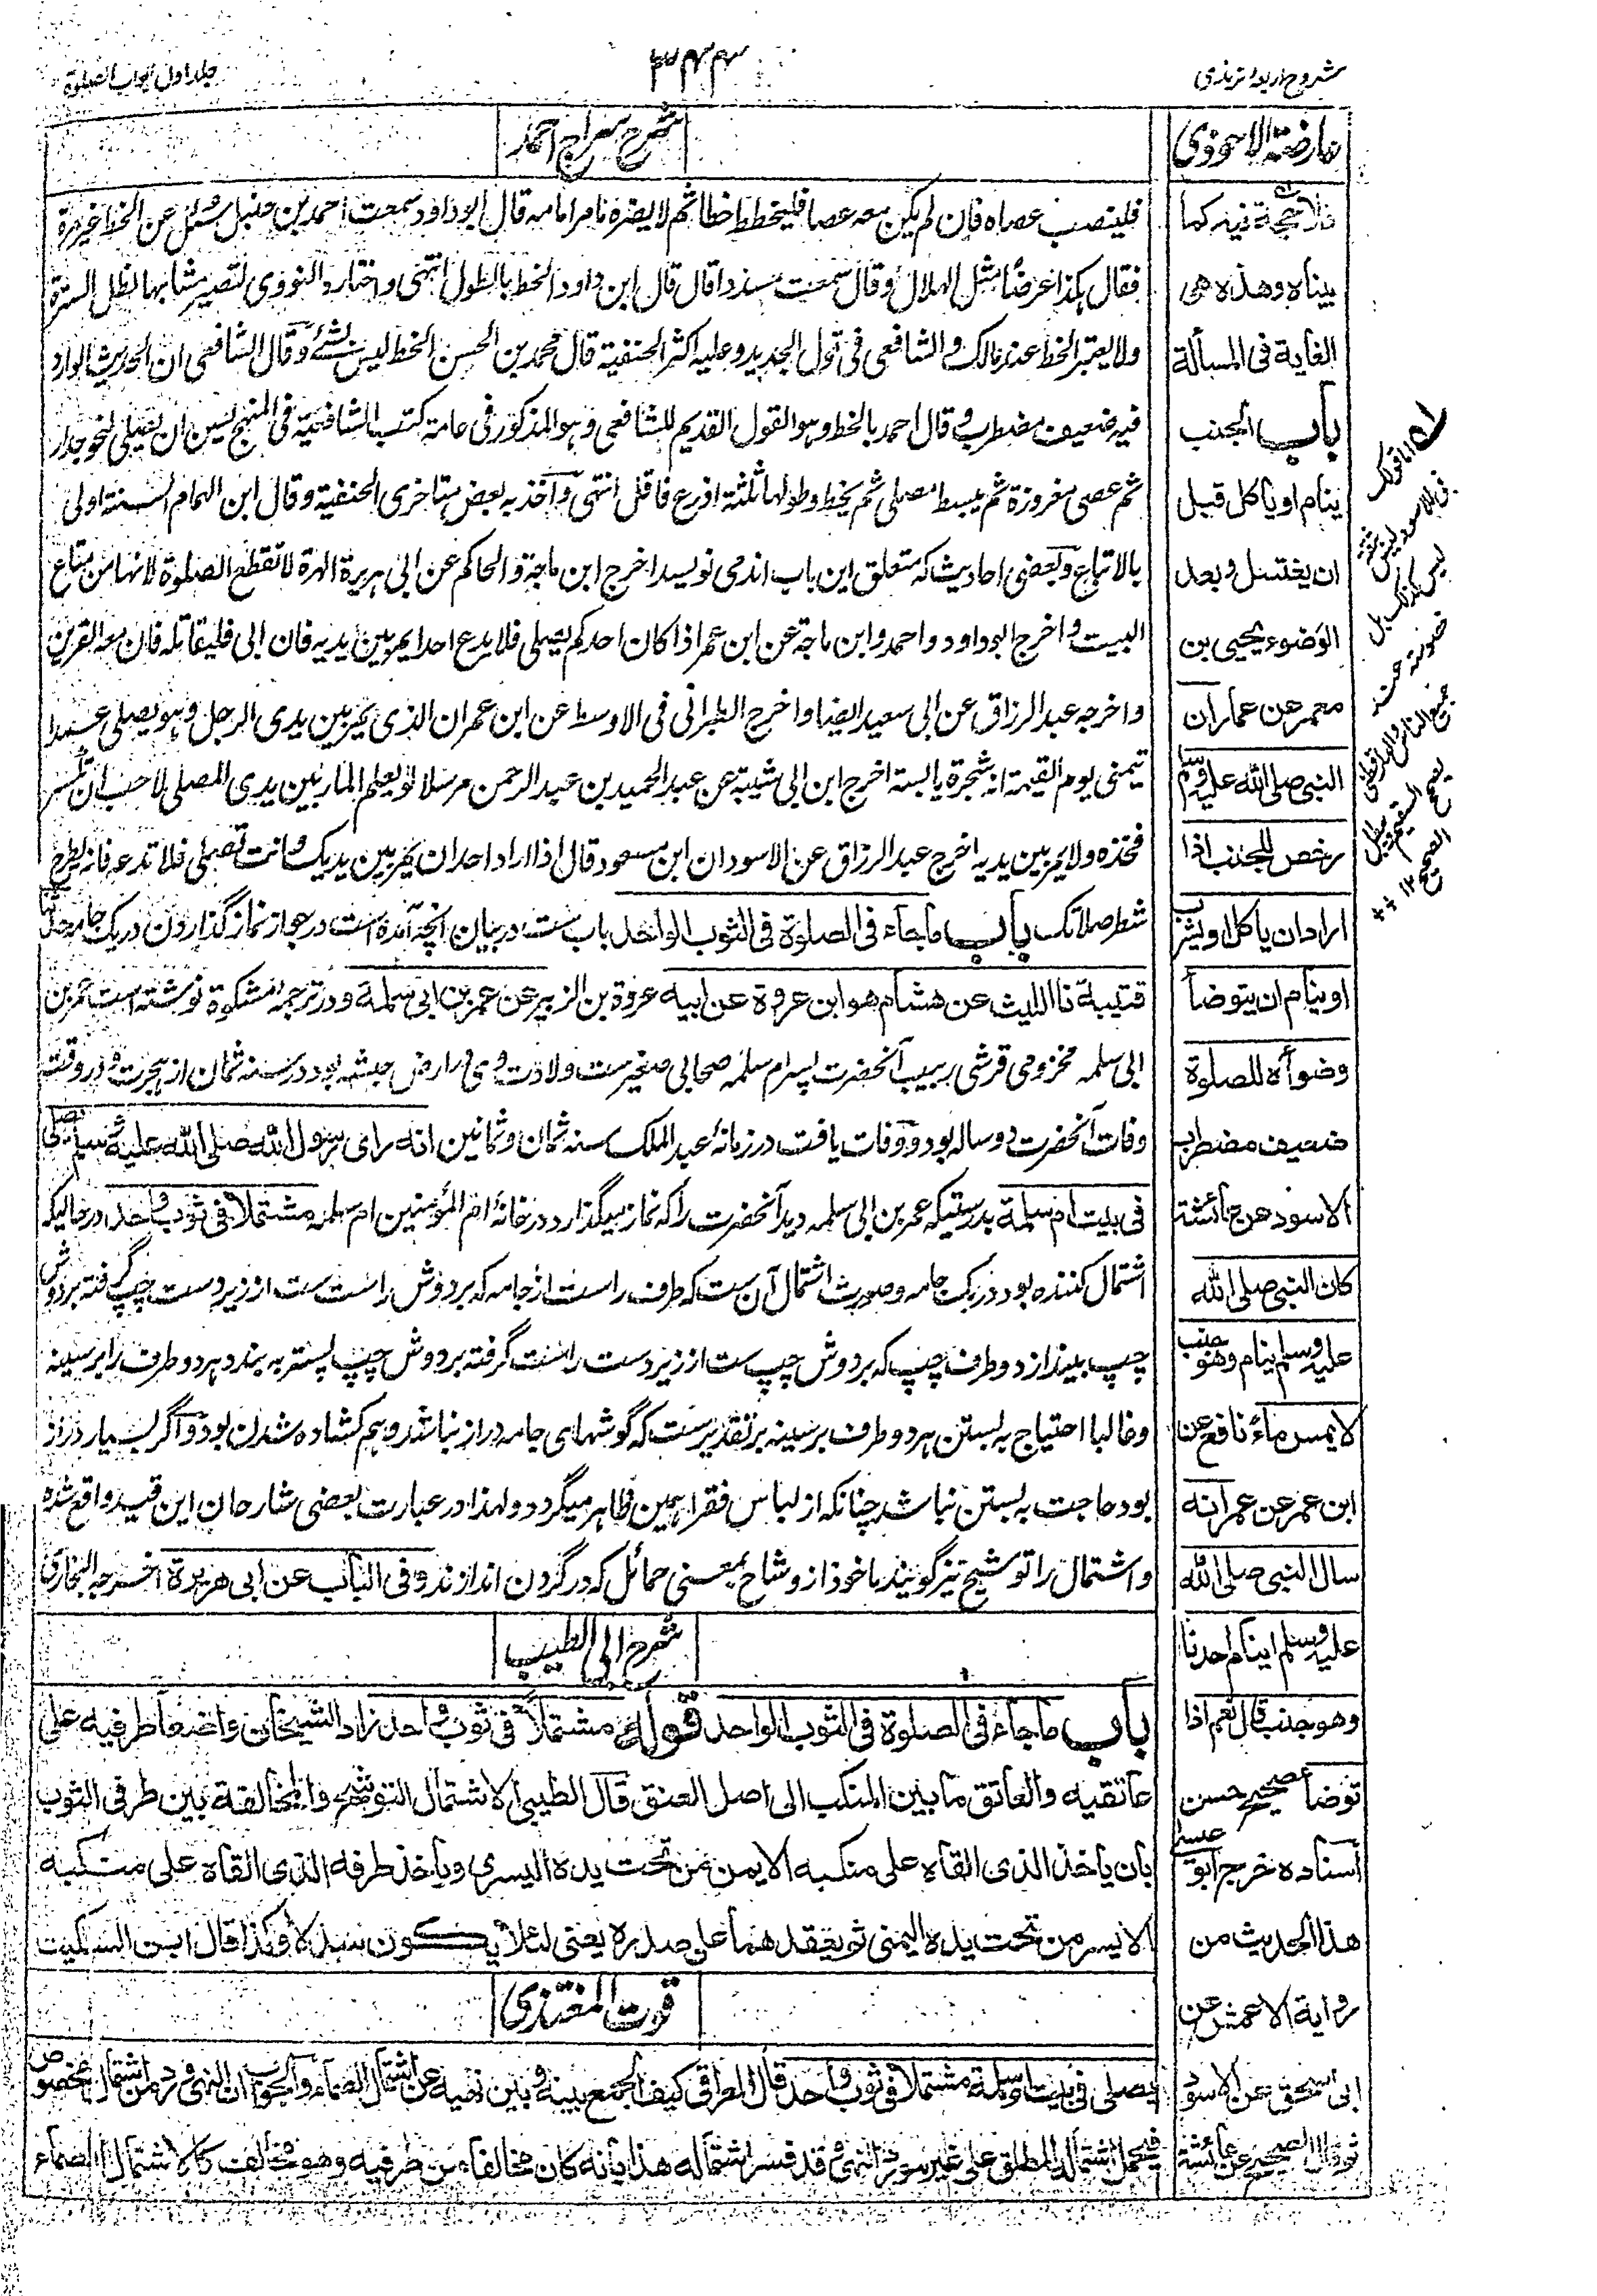 شروح اربعه ترمذی
۳۴۴
جلد اول ابواب الصلوة
عارضة الاحوذی
فلا حجة فیه کما
بیناه وهذه هی
الغایة فی المسألة
باب الجنب
ینام او یاکل قبل
ان یغتسل وبعد
الوضوء یحیی بن
معمر عن عمار ان
النبی صلی الله علیه وسلم
رخص للجنب اذا
اراد ان یاکل او یشرب
او ینام ان یتوضأ
وضوأه للصلوة
ضعیف مضطرب
الاسود عن عائشة
کان النبی صلی الله
علیه وسلم ینام وهو جنب
لا یمس ماء نافع عن
ابن عمر عن عمر انه
سال النبی صلی الله
علیه وسلم اینام احدنا
وهو جنب قال نعم اذا
توضأ صحیح حسن
اسناده خرج ابو عیسی
هذا الحدیث من
روایة الاعمش عن
ابی اسحق عن الاسود
عن عائشة
شرح سراج احمد
فلینصب عصاه فان لم یکن معه عصا فلیخطط خطا ثم لا یضره ما مر امامه قال ابو داود سمعت احمد بن حنبل سئل عن الخط غیر مرة
فقال هکذا عرضا مثل الهلال وقال سمعت مسددا قال قال ابن داود الخط بالطول انتهی واختاره النووی لتصیر مشابها لظل السترة
ولا یعتبر الخط عند مالک والشافعی فی قول الجدید وعلیه اکثر الحنفیة قال محمد بن الحسن الخط لیس بشئ وقال الشافعی ان الحدیث الوارد
فیه ضعیف مضطرب وقال احمد بالخط وهو القول القدیم للشافعی وهو المذکور فی عامة کتب الشافعیة فی المنهج یسن ان یصلی لنحو جدار
ثم عصی مغروزة ثم یبسط مصلی ثم یخط وطولها ثلثة اذرع فاقل انتهی واخذ به بعض متاخری الحنفیة وقال ابن الهمام السنة اولی
بالاتباع وبعضی احادیث که متعلق این باب اند می نویسد اخرج ابن ماجة والحاکم عن ابی هریرة الهرة لا تقطع الصلوة لانها من متاع
البیت واخرج ابو داود واحمد وابن ماجة عن ابن عمر اذا کان احدکم یصلی فلا یدع احدا یمر بین یدیه فان ابی فلیقاتله فان معه القرین
واخرجه عبد الرزاق عن ابی سعید ایضا واخرج الطبرانی فی الاوسط عن ابن عمر ان الذی یمر بین یدی الرجل وهو یصلی عمدا
یتمنی یوم القیمة انه شجرة یابسة اخرج ابن ابی شیبة عن عبد الحمید بن عبد الرحمن مرسلا لو یعلم المار بین یدی المصلی لاحب ان تکسر
فخذه ولا یمر بین یدیه اخرج عبد الرزاق عن الاسود ان ابن مسعود قال اذا اراد احد ان یمر بین یدیک وانت تصلی فلا تدعه فانه یطرح
شطر صلاتک باب ما جاء فی الصلوة فی الثوب الواحد باب ست در بیان آنچه آمده است در جواز نماز گذاردن در یک جامه حدثنا
قتیبة نا اللیث عن هشام هو ابن عروة عن ابیه عروة بن الزبیر عن عمر بن ابی سلمة و در ترجمه مشکوة نوشته است عمر بن
ابی سلمه مخزومی قرشی ربیب آنحضرت پسر ام سلمه صحابی صغیر ست ولادت وی در ارض حبشه بود در سنه ثمان از هجرت و در وقت
وفات آنحضرت دو ساله بود و وفات یافت در زمانه عبد الملک سنه ثمان وثمانین انه رای رسول الله صلی الله علیه وسلم یصلی
فی بیت ام سلمة بدرستیکه عمر بن ابی سلمه دید آنحضرت را که نماز میگذارد در خانه ام المؤمنین ام سلمه مشتملا فی ثوب واحد در حالیکه
اشتمال کننده بود در یک جامه وصورت اشتمال آن ست که طرف راست از جامه که بر دوش راست ست از زیر دست چپ گرفته بر دوش
چپ بیندازد وطرف چپ که بر دوش چپ ست از زیر دست راست گرفته بر دوش چپ پستر به بندد هر دو طرف را بر سینه
وغالبا احتیاج به بستن هر دو طرف بر سینه بر تقدیر ست که گوشهای جامه دراز نباشد وبیم کشاده شدن بود واگر بسیار دراز
بود حاجت به بستن نباشد چنانکه از لباس فقراء یمن ظاهر میگردد ولهذا در عبارت بعضی شارحان این قید واقع نشده
واشتمال را توشیح نیز گویند ماخوذ از وشاح بمعنی حمائل که در گردن اندازند وفی الباب عن ابی هریرة اخرجه البخاری
شرح ابی الطیب
باب ما جاء فی الصلوة فی الثوب الواحد قوله مشتملا فی ثوب واحد زاد الشیخان واضعا طرفیه علی
عاتقیه والعاتق ما بین المنکب الی اصل العنق قال الطیبی الاشتمال التوشح والمخالفة بین طرفی الثوب
بان یاخذ الذی القاه علی منکبه الایمن من تحت یده الیسری ویاخذ طرفه الذی القاه علی منکبه
الایسر من تحت یده الیمنی ثم یعقدهما علی صدره یعنی لئلا یکون سدلا وکذا قال ابن السکیت
قوت المغتذی
یصلی فی بیت ام سلمة مشتملا فی ثوب واحد قال العراقی کیف الجمع بینه وبین نهیه عن اشتمال الصماء والجواب ان النهی ورد من اشتمال مخصوص
فیحمل اشتماله المطلق علی غیر صورة النهی وقد فسر اشتماله هذا بانه کان مخالفا بین طرفیه وهو مخالف کالاشتمال الصماء
اما قولک
جمیع الناس والدارقطنی
یصحح السقیم ویبطل
الصحیح ۱۲